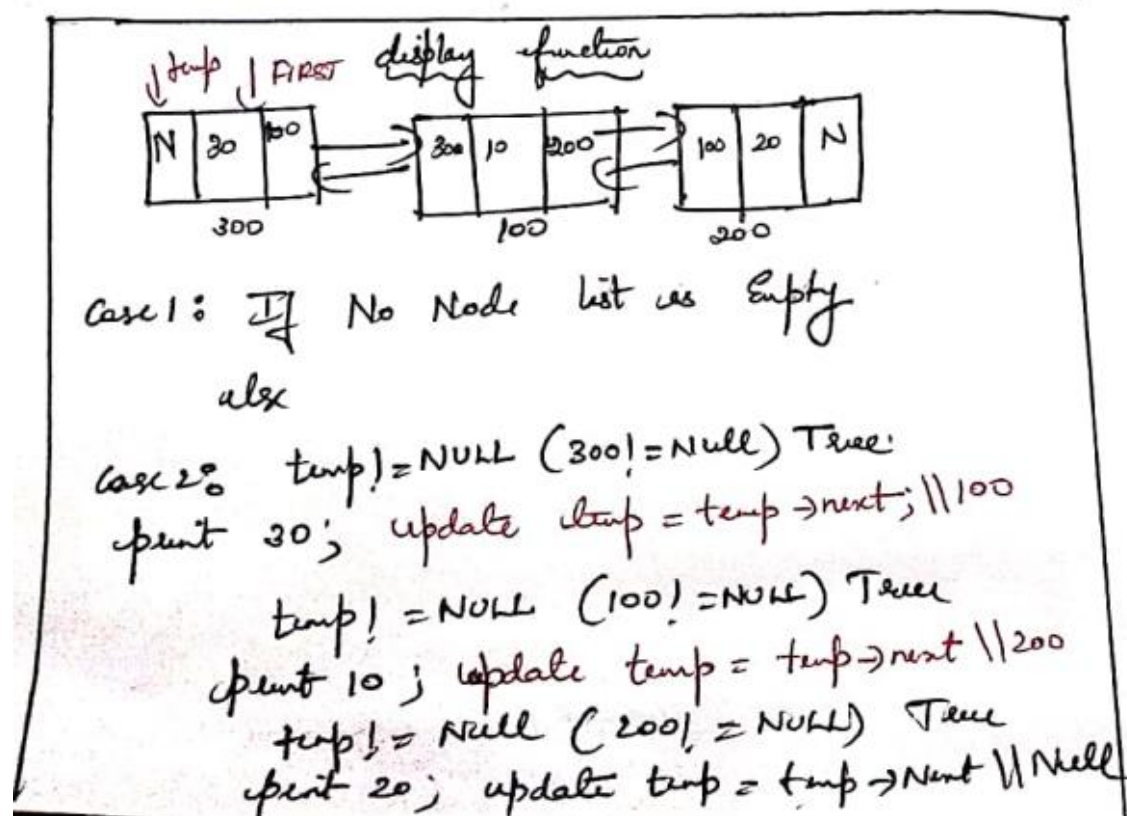 display function
temp FIRST
N 30 100 300 10 200 100 20 N
300 100 200
Case 1: If No Node list is Empty
else
Case 2: temp != NULL (300! = Null) True
print 30; update temp = temp → next; \\ 100
temp! = NULL (100! = NULL) True
print 10; update temp = temp → next \\ 200
temp! = Null (200! = NULL) True
print 20; update temp = temp → Next \\ Null